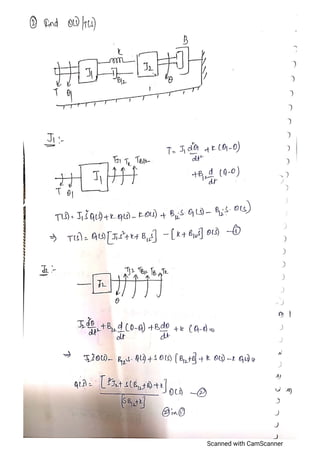 ③ Find θ(s)/T(s)
K B
J1 B12 J2
T θ1 θ
J1 :-
T = J1 d²θ1/dt² + k (θ1-θ)
+ B12 d/dt (θ1-θ)
J1
T θ1
T(s) = J1 s² θ1(s) + k θ1(s) - k θ(s) + B12 s θ1(s) - B12 s θ(s)
⇒ T(s) = θ1(s) [J1 s² + k + B12 s] - [k + B12 s] θ(s) —①
J2 :-
J2
θ
J2 d²θ/dt² + B12 d/dt (θ-θ1) + B dθ/dt + k (θ-θ1) = 0
⇒ J2 s² θ(s) - B12 s θ1(s) + s θ(s) [B12 + B] + k θ(s) - k θ1(s) = 0
θ1(s) = [s² J2 + s (B12 + B) + k] / [s B12 + k] θ(s) —②
② in ①
Scanned with CamScanner